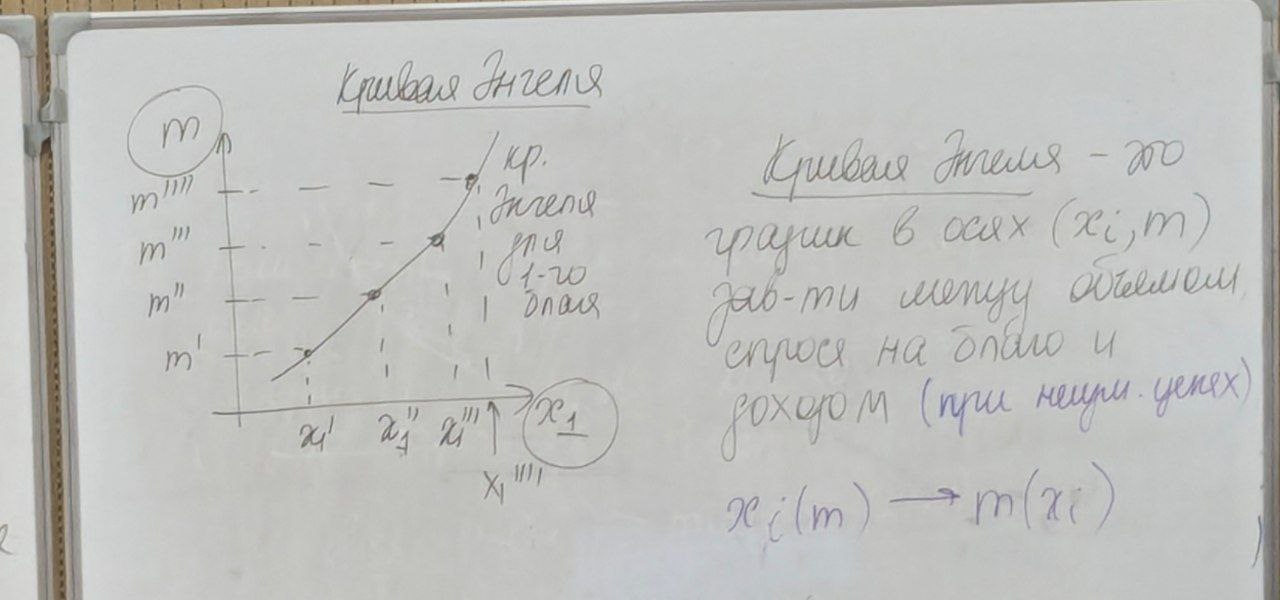 Кривая Энгеля
m
m''''
m'''
m''
m'
кр.
Энгеля
для
1-го
блага
x₁'
x₁''
x₁'''
x₁''''
x₁
Кривая Энгеля – это
график в осях (xᵢ, m)
зав-ти между объемом
спроса на благо и
доходом (при неизм. ценах)
xᵢ(m) → m(xᵢ)